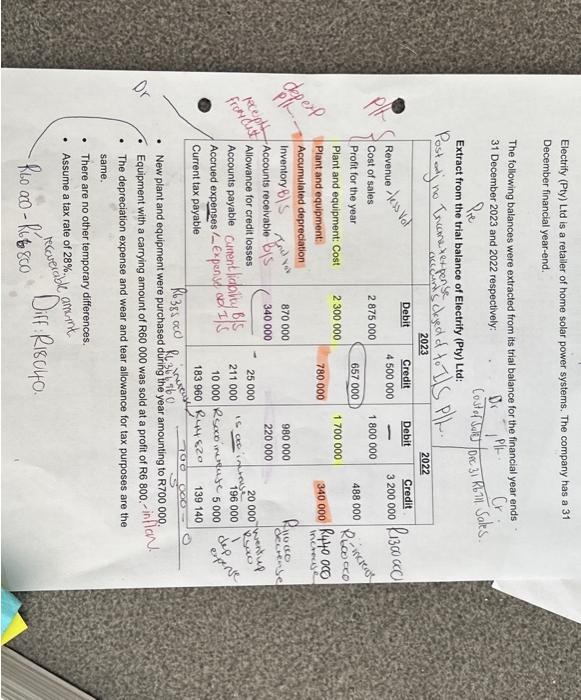 Electrify (Pty) Ltd is a retailer of home solar power systems. The company has a 31
December financial year-end.
The following balances were extracted from its trial balance for the financial year ends
31 December 2023 and 2022 respectively:
Dr P/L Cr.
Cost of Sales Sales.
Pre
Extract from the trial balance of Electrify (Pty) Ltd:
Post adj no
accounts closed
P/L.
2023 2022
Debit Credit Debit Credit
Revenue 4 500 000 – 3 200 000 R1300 000
P/L
Cost of sales 2 875 000 1 800 000
Profit for the year 657 000 488 000
Plant and equipment: Cost 2 300 000 1 700 000 R600 000 increase
Plant and equipment: Accumulated depreciation 780 000 340 000 R440 000 increase
depexp P/L
Inventory B/S 870 000 980 000 R110 000 decrease
Accounts receivable B/S 340 000 220 000
Allowance for credit losses 25 000 20 000
Accounts payable Current liability B/S 211 000 196 000
Accrued expenses 10 000 R5000 increase 5 000
Current tax payable 183 960 R44 820 139 140
Dr
R6 385 000
700 000
• New plant and equipment were purchased during the year amounting to R700 000.
• Equipment with a carrying amount of R60 000 was sold at a profit of R6 800. - inflow
• The depreciation expense and wear and tear allowance for tax purposes are the
same.
• There are no other temporary differences.
• Assume a tax rate of 28%.
recoverable amount
R60 000 - R66 800 Diff: R18040.